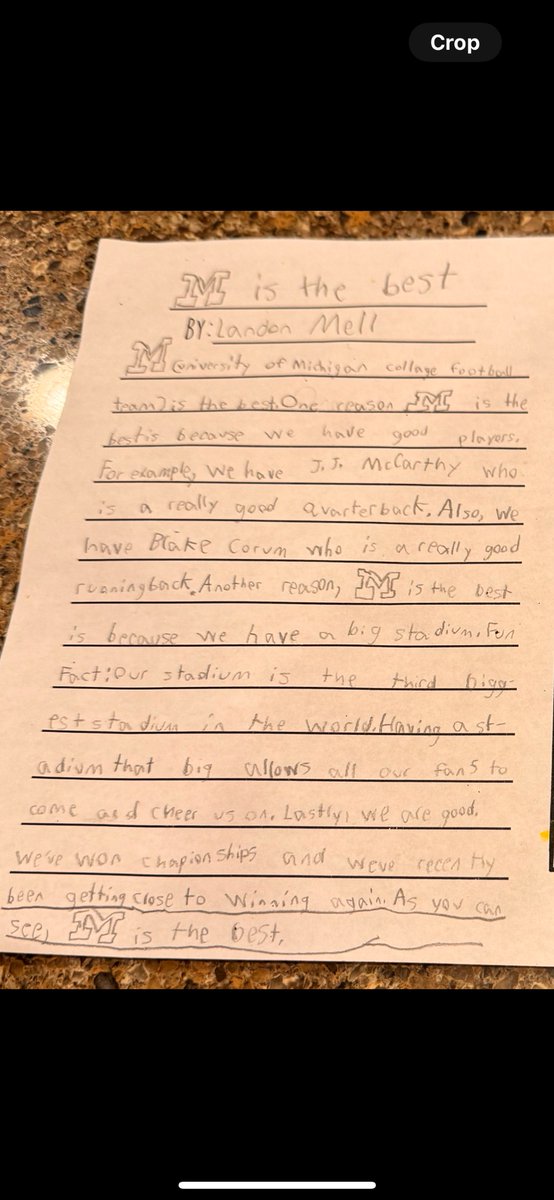 Crop
M is the best
BY: Landon Mell
M (University of Michigan collage football
team) is the best. One reason, M is the
best is because we have good players.
For example, we have J.J. McCarthy who
is a really good quarterback. Also, we
have Blake Corum who is a really good
runningback. Another reason, M is the best
is because we have a big stadium. Fun
Fact: Our stadium is the third bigg-
est stadium in the world. Having a st-
adium that big allows all our fans to
come and cheer us on. Lastly, we are good.
We've won chapionships and weve recently
been getting close to winning again. As you can
see, M is the best.